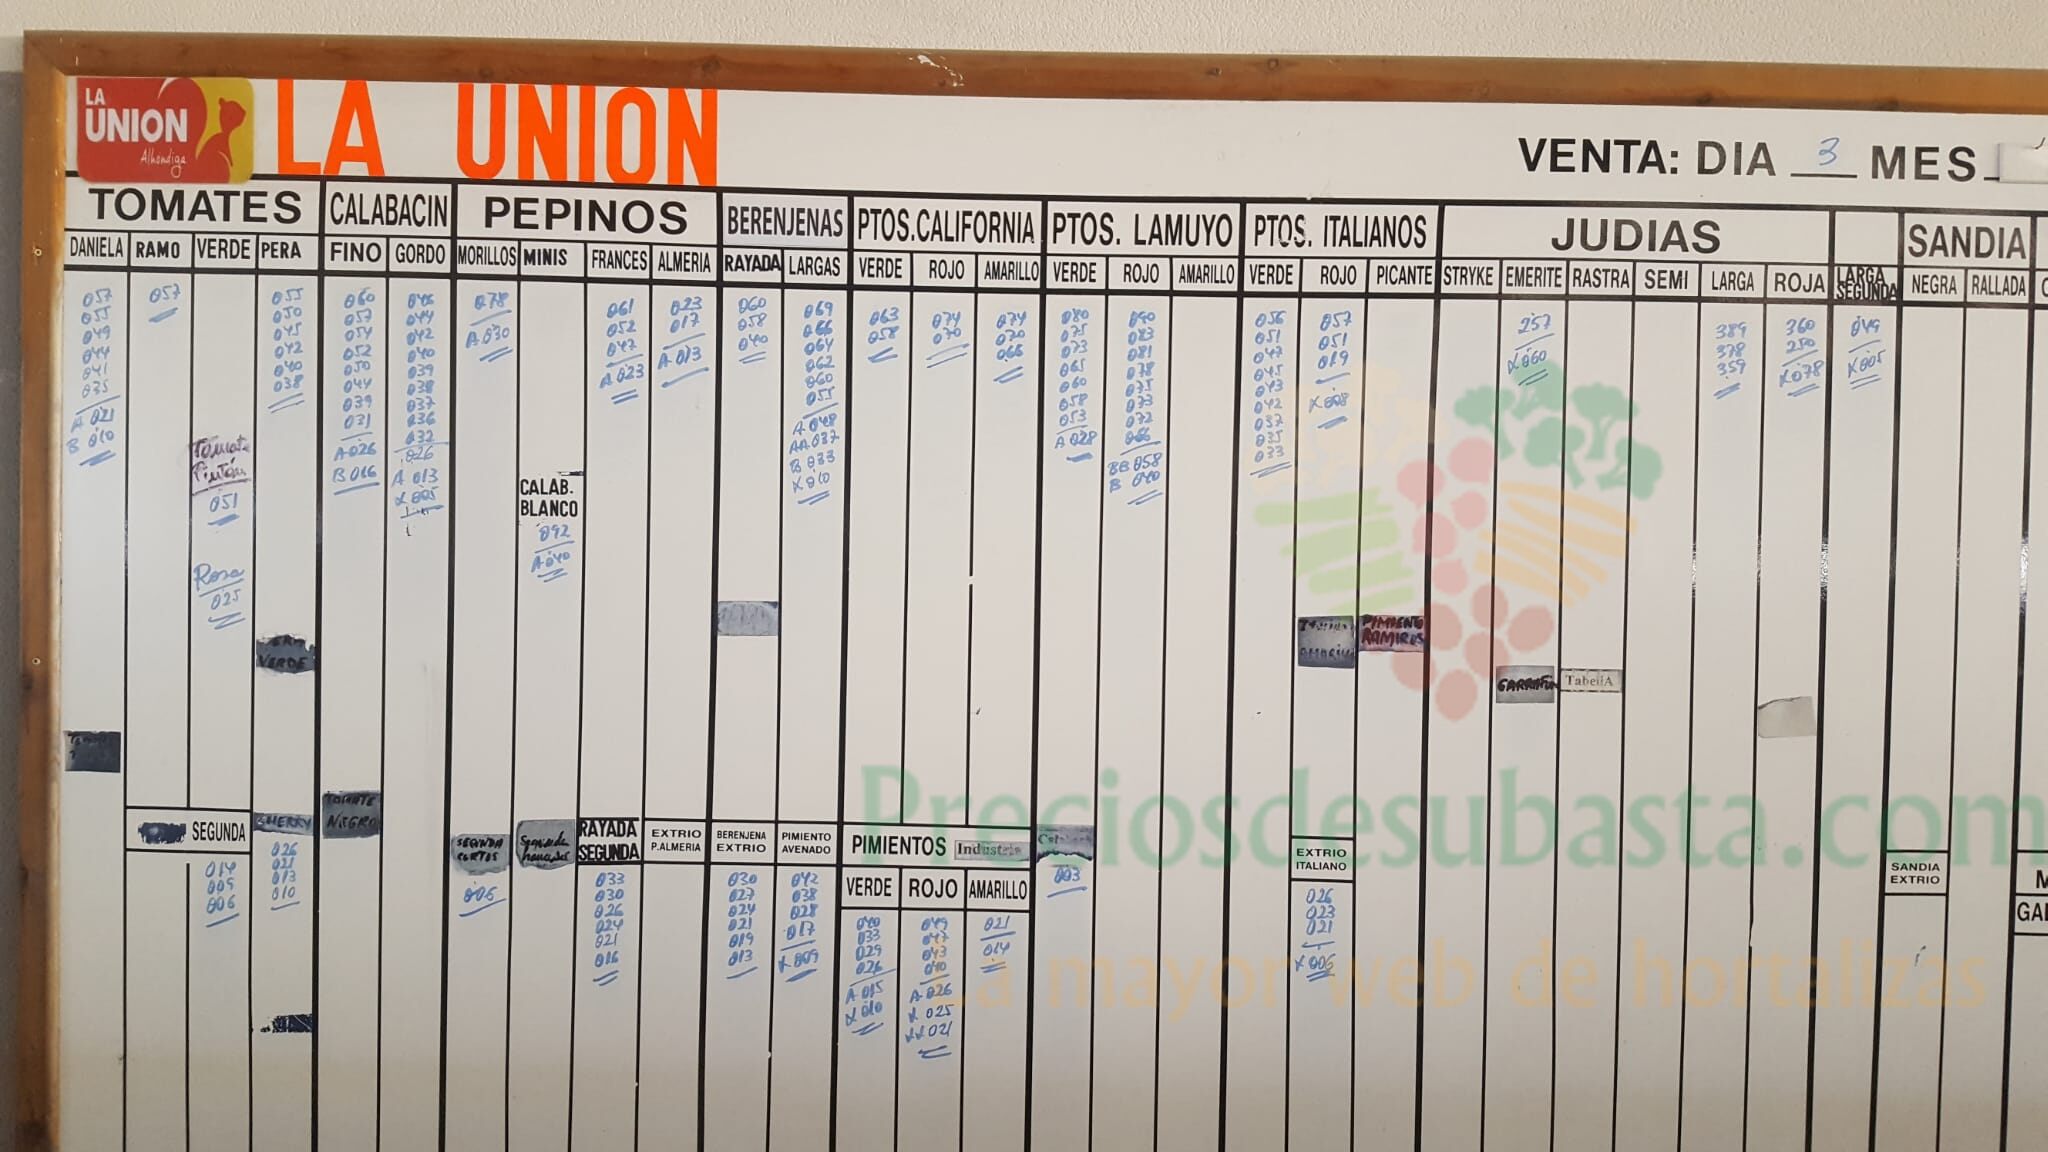 LA
UNION
Alhondiga
LA UNION
VENTA: DIA 3 MES
TOMATES
CALABACIN
PEPINOS
BERENJENAS
PTOS. CALIFORNIA
PTOS. LAMUYO
PTOS. ITALIANOS
JUDIAS
SANDIA
DANIELA RAMO VERDE PERA
FINO GORDO
MORILLOS MINIS FRANCES ALMERIA
RAYADA LARGAS
VERDE ROJO AMARILLO
VERDE ROJO AMARILLO
VERDE ROJO PICANTE
STRYKE EMERITE RASTRA SEMI LARGA ROJA
LARGA
SEGUNDA
NEGRA RALLADA
057
055
049
044
041
035
A 021
B 010
057
Tomate
Pintón
051
Rosa
025
055
050
045
042
040
038
VERDE
060
057
054
052
050
044
039
031
A 026
B 016
046
044
042
040
039
038
037
036
032
026
A 013
X 005
078
A 030
CALAB.
BLANCO
092
A 040
061
052
047
A 023
023
017
A 013
060
058
040
069
066
064
062
060
055
A 048
AA 037
B 033
X 010
063
058
074
070
074
070
066
080
075
073
065
060
058
053
A 028
090
083
081
078
075
073
072
066
BB 058
B 040
056
051
047
045
043
042
037
035
033
057
051
019
X 008
PIMIENTO
RAMIROS
257
X 060
GARRAFON
TabellA
389
378
359
360
250
X 078
049
X 005
SEGUNDA
014
009
006
CHERRY
026
021
013
010
TOMATE
NEGRO
SEGUNDA
CORTOS
006
Segunda
RAYADA
SEGUNDA
033
030
026
024
021
016
EXTRIO
P.ALMERIA
BERENJENA
EXTRIO
030
027
024
021
019
013
PIMIENTO
AVENADO
042
038
028
017
X 009
PIMIENTOS Industria
VERDE ROJO AMARILLO
040
033
029
026
A 015
X 010
049
047
043
040
A 026
X 025
XX 021
021
014
003
EXTRIO
ITALIANO
026
023
021
X 006
SANDIA
EXTRIO
Preciosdesubasta.com
La mayor web de hortalizas